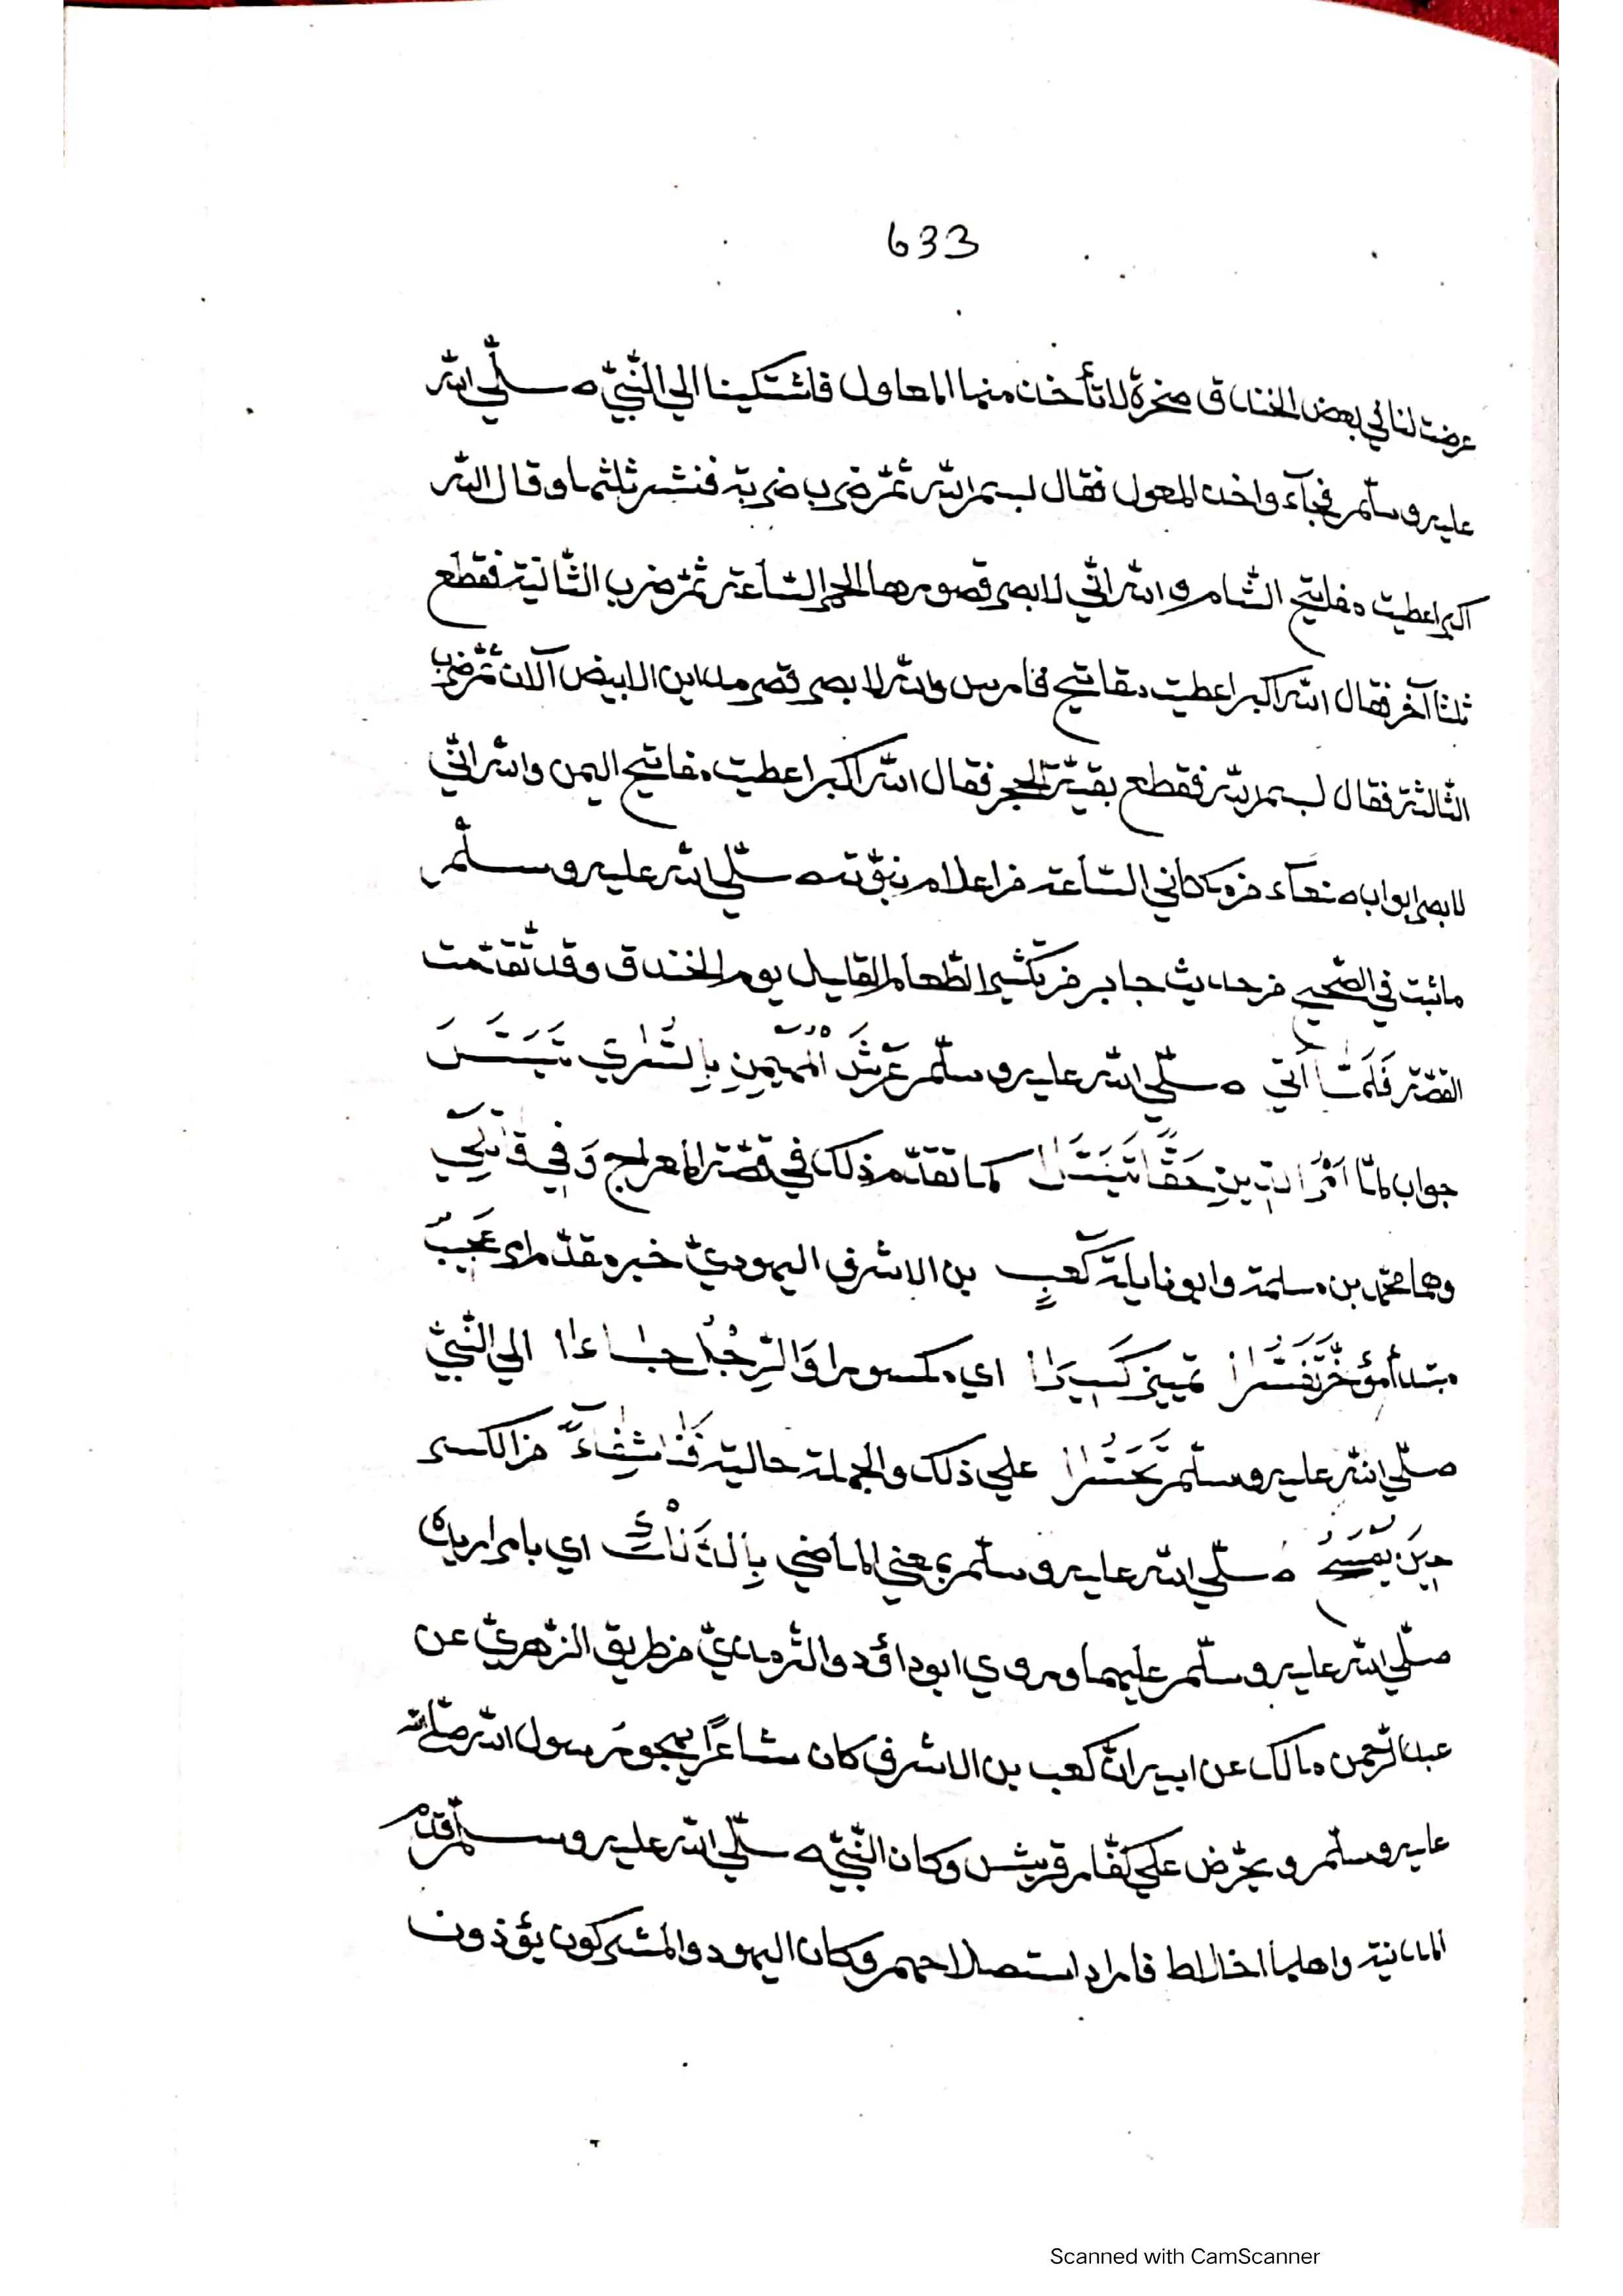 633
عرضت لنا في بعض الخندق صخرة لا تأخذ منها المعاول فاشتكينا الي النّبيّ صلّي اللّه
عليه وسلّم فجآء واخذ المعول فقال بسم اللّه ثمّ ضرب ضربة فنشر ثلثها وقال اللّه
اكبر اعطيت مفاتيح الشّام واللّه انّي لابصر قصورها الحمر السّاعة ثمّ ضرب الثّانية فقطع
ثلثا آخر فقال اللّه اكبر اعطيت مفاتيح فارس واللّه لابصر قصر مداين الابيض آلان ثمّ ضرب
الثّالثة فقال بسم اللّه فقطع بقيّة الحجر فقال اللّه اكبر اعطيت مفاتيح اليمن واللّه انّي
لابصر ابواب صنعآء من مكاني السّاعة من اعلام نبوّته صلّي اللّه عليه وسلّم
ما ثبت في الصّحيح من حديث جابر من تكثير الطّعام القليل يوم الخندق وقد تقدّمت
القصّة فَلَمَّا اَتي صلّي اللّه عليه وسلّم عَرْشَ الْمُهَيْمِنِ بِالسُّرٰي تَيَسَّرَ
جواب لمّا اَمْرُ الدِّينِ حَقًّا تَيَسَّرَا كما تقدّم ذلك في قصّة المعراج وَفِي قَاتِلِي
وهما محمّد بن مسلمة وابو نايلة كَعبٍ بن الاشرف اليهوديّ خبر مقدّم اي عَجِيبٌ
مبتدأ مؤخّر تَفَسُّرًا تمييز كَسِيرًا اي مكسورا وَالرِّجْلُ جاءا الي النّبيّ
صلّي اللّه عليه وسلّم تَحَسُّرًا علي ذلك والجملة حالية شِفَاءٌ من الكسر
حِينَ يَمْسَحُ صلّي اللّه عليه وسلّم بمعني الماضي اي بامرار يده
صلّي اللّه عليه وسلّم عليهما وروي ابو داؤد والتّرمذيّ من طريق الزّهريّ عن
عبد الرّحمن مالك عن ابيه انّ كعب بن الاشرف كان شاعرًا يهجو رسول اللّه صلّي اللّه
عليه وسلّم ويحرّض علي كفّار قريش وكان النّبيّ صلّي اللّه عليه وسلّم قدم
المدينة واهلها اخلاط فاراد استصلاحهم وكان اليهود والمشركون يؤذون
Scanned with CamScanner